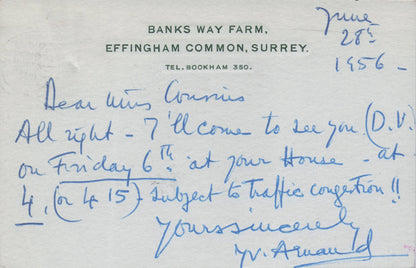 BANKS WAY FARM,
EFFINGHAM COMMON, SURREY.
TEL. BOOKHAM 350.
June
28th
1956 -
Dear Miss Cousins
All right - I'll come to see you (D.V)
on Friday 6th at your House - at
4, (or 4 15) - subject to traffic congestion!!
Yours sincerely
Yv. Arnaud